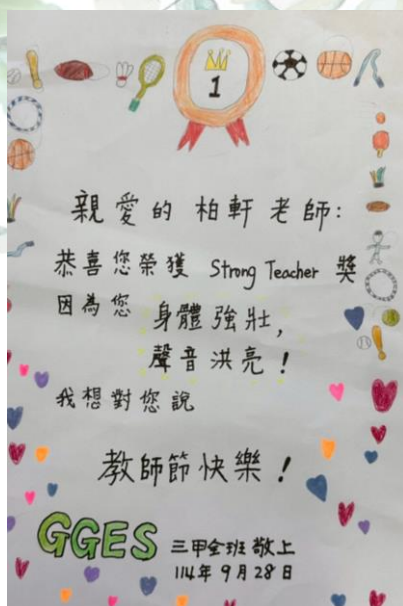 1
親愛的柏軒老師:
恭喜您榮獲 Strong Teacher 獎
因為您 身體強壯,
聲音洪亮!
我想對您說
教師節快樂!
GGES 三甲全班 敬上
114年9月28日